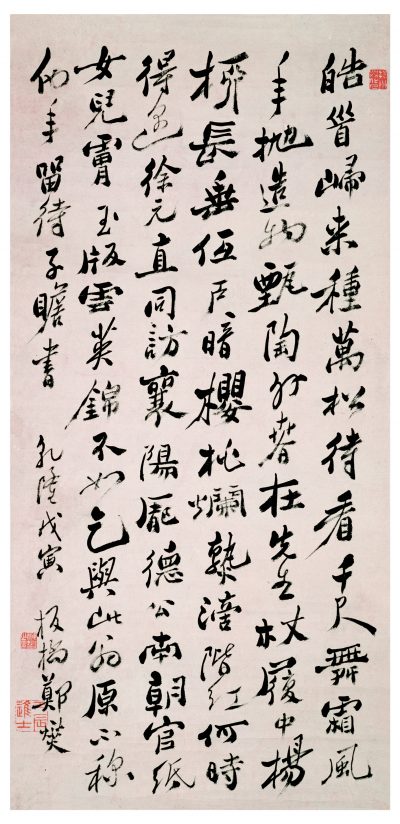 皓首歸来種萬松待看千尺舞霜風
年抛造物甄陶外春在先生杖履中楊
栁長垂低戶暗櫻桃爛熟滴階紅何時
得邀徐元直同訪襄陽龐德公南朝官紙
女兒膚玉版雲英錦不如乞與此翁原不称
他年留待子瞻書 乾隆戊寅 板橋鄭燮
丙辰進士